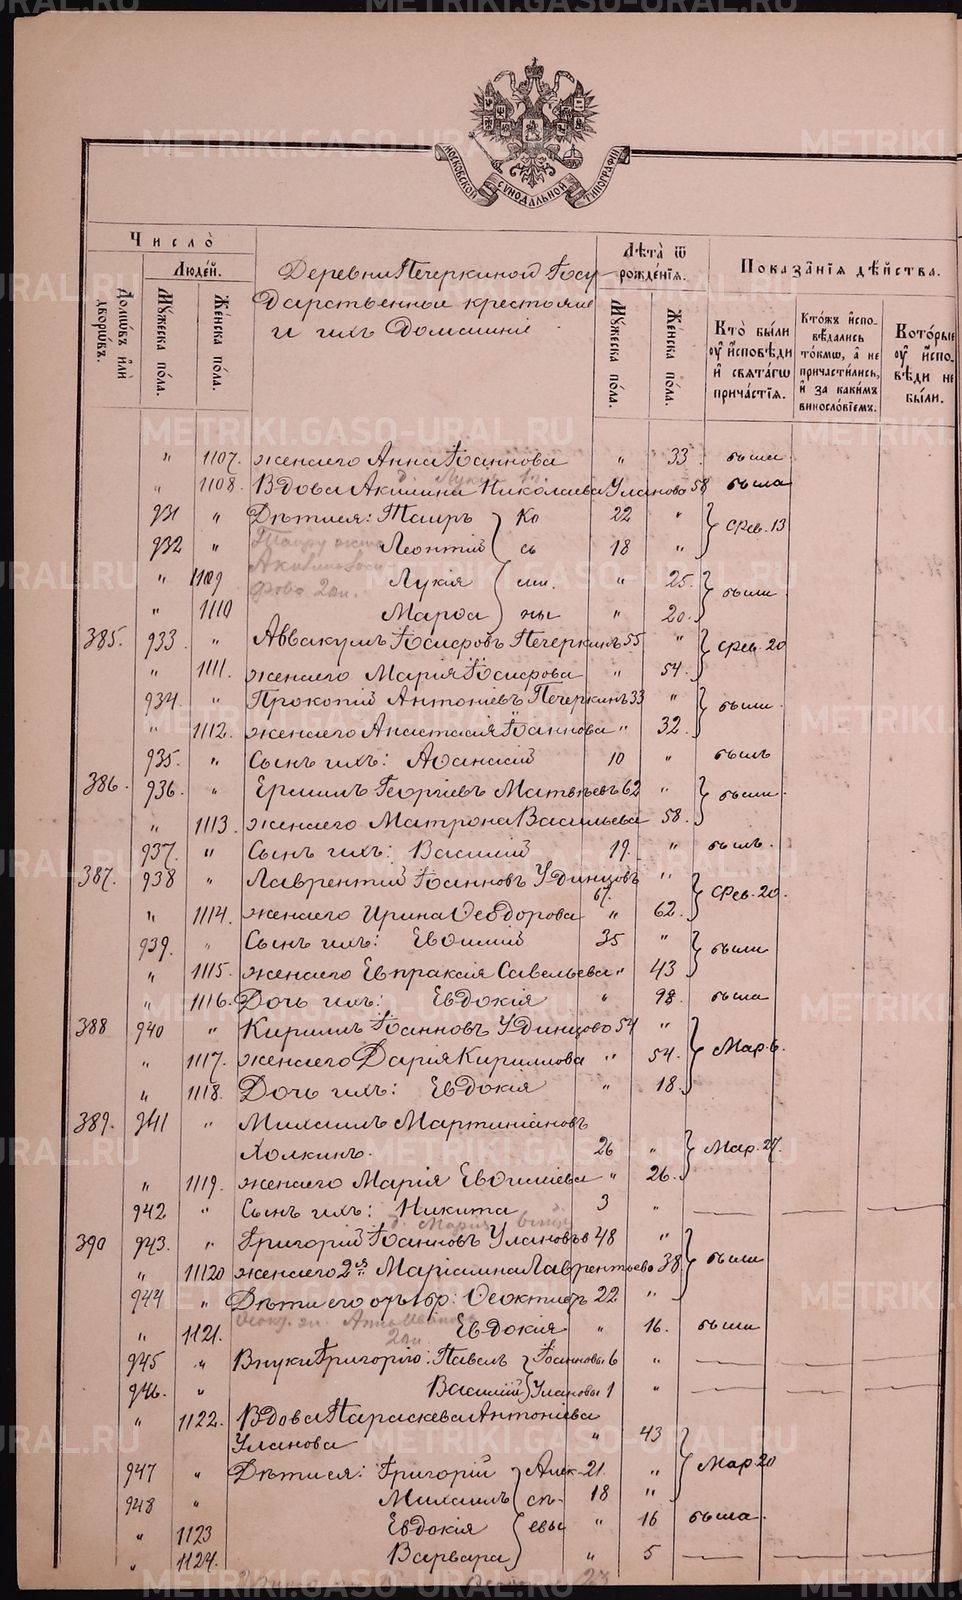 МОСКОВСКОЙ СУНОДАЛЬНОЙ ТИПОГРАФІИ
Число̀
Людей.
Домѡвъ или дворѡвъ.
Мꙋжеска пола.
Женска пола.
Деревни Печеркиной Госу
дарственные крестьяне
и ихъ домашніе
Лѣта ѿ рожденія.
Мꙋжеска пола.
Женска пола.
Показанія дѣйства.
Кто были оу исповѣди и свѧтагѡ причастія.
Ктожъ исповѣдались токмѡ, а не причастились, и за какимъ винословіемъ.
Которые оу исповѣди не были.
" 1107. жена его Анна Іоаннова " 33 была
" 1108. Вдова Акилина Николаева Уланова 58 была
931 " Дѣти ея: Таиръ Ко 22 " Фев. 13
932 " Леонтій сь 18 "
" 1109 Лукія ми. " 25. были
" 1110 Марѳа ны " 20.
385. 933 " Аввакумъ Іосифовъ Печеркинъ 55 " Фев. 20
" 1111. жена его Марія Іосифова " 54.
934. " Прокопій Антоніевъ Печеркинъ 33 " были
" 1112. жена его Анастасія Іоаннова " 32.
935. " Сынъ ихъ: Аѳанасій 10 " былъ
386. 936. " Ермилъ Георгіевъ Матвѣевъ 62 " были.
" 1113. жена его Матрона Васильева 58.
937. " Сынъ ихъ: Василій 19. " былъ.
387. 938 " Лаврентій Іоанновъ Удинцовъ 67. " Фев. 20.
" 1114. жена его Ирина Ѳеодорова " 62.
939. " Сынъ ихъ: Евѳимій 35 " были
" 1115. жена его Евпраксія Савельева " 43
" 1116. Дочь ихъ: Евдокія " 98. была
388 940 " Кириллъ Іоанновъ Удинцовъ 54 " Мар. 6.
" 1117. жена его Дарія Кириллова " 54.
" 1118. Дочь ихъ: Евдокія " 18.
389. 941 " Михаилъ Мартиніановъ
Холкинъ. 26 " Мар. 27.
" 1119. жена его Марія Евѳиміева " 26.
942 " Сынъ ихъ: Никита 3 "
390 943. " Григорій Іоанновъ Улановъ 48 " были
" 11120 жена его 2я Маріамна Лаврентьева 38.
944 " Дѣти его отъ 1 бр: Ѳеоктиръ 22 "
" 1121. Евдокія " 16. была
945 " Внуки Григорія: Павелъ Іоанновы 6 "
946. " Василій Улановы 1 "
" 1122. Вдова Параскева Антоніева
Уланова " 43 Мар 20
947 " Дѣти ея: Григорій Алек- 21. "
948 " Михаилъ сѣ- 18 "
" 1123 Евдокія евы " 16 была.
" 1124. Варвара " 5
METRIKI.GASO-URAL.RU